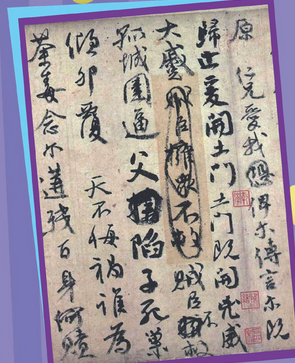 原 仁兄愛我俾爾傳言爾既
歸止爰開土門土門既開凶威
大蹙賊臣擁眾不救賊臣不救
孤城圍逼父陷子死巢
傾卵覆 天不悔禍誰為
荼毒念爾遘殘百身何贖